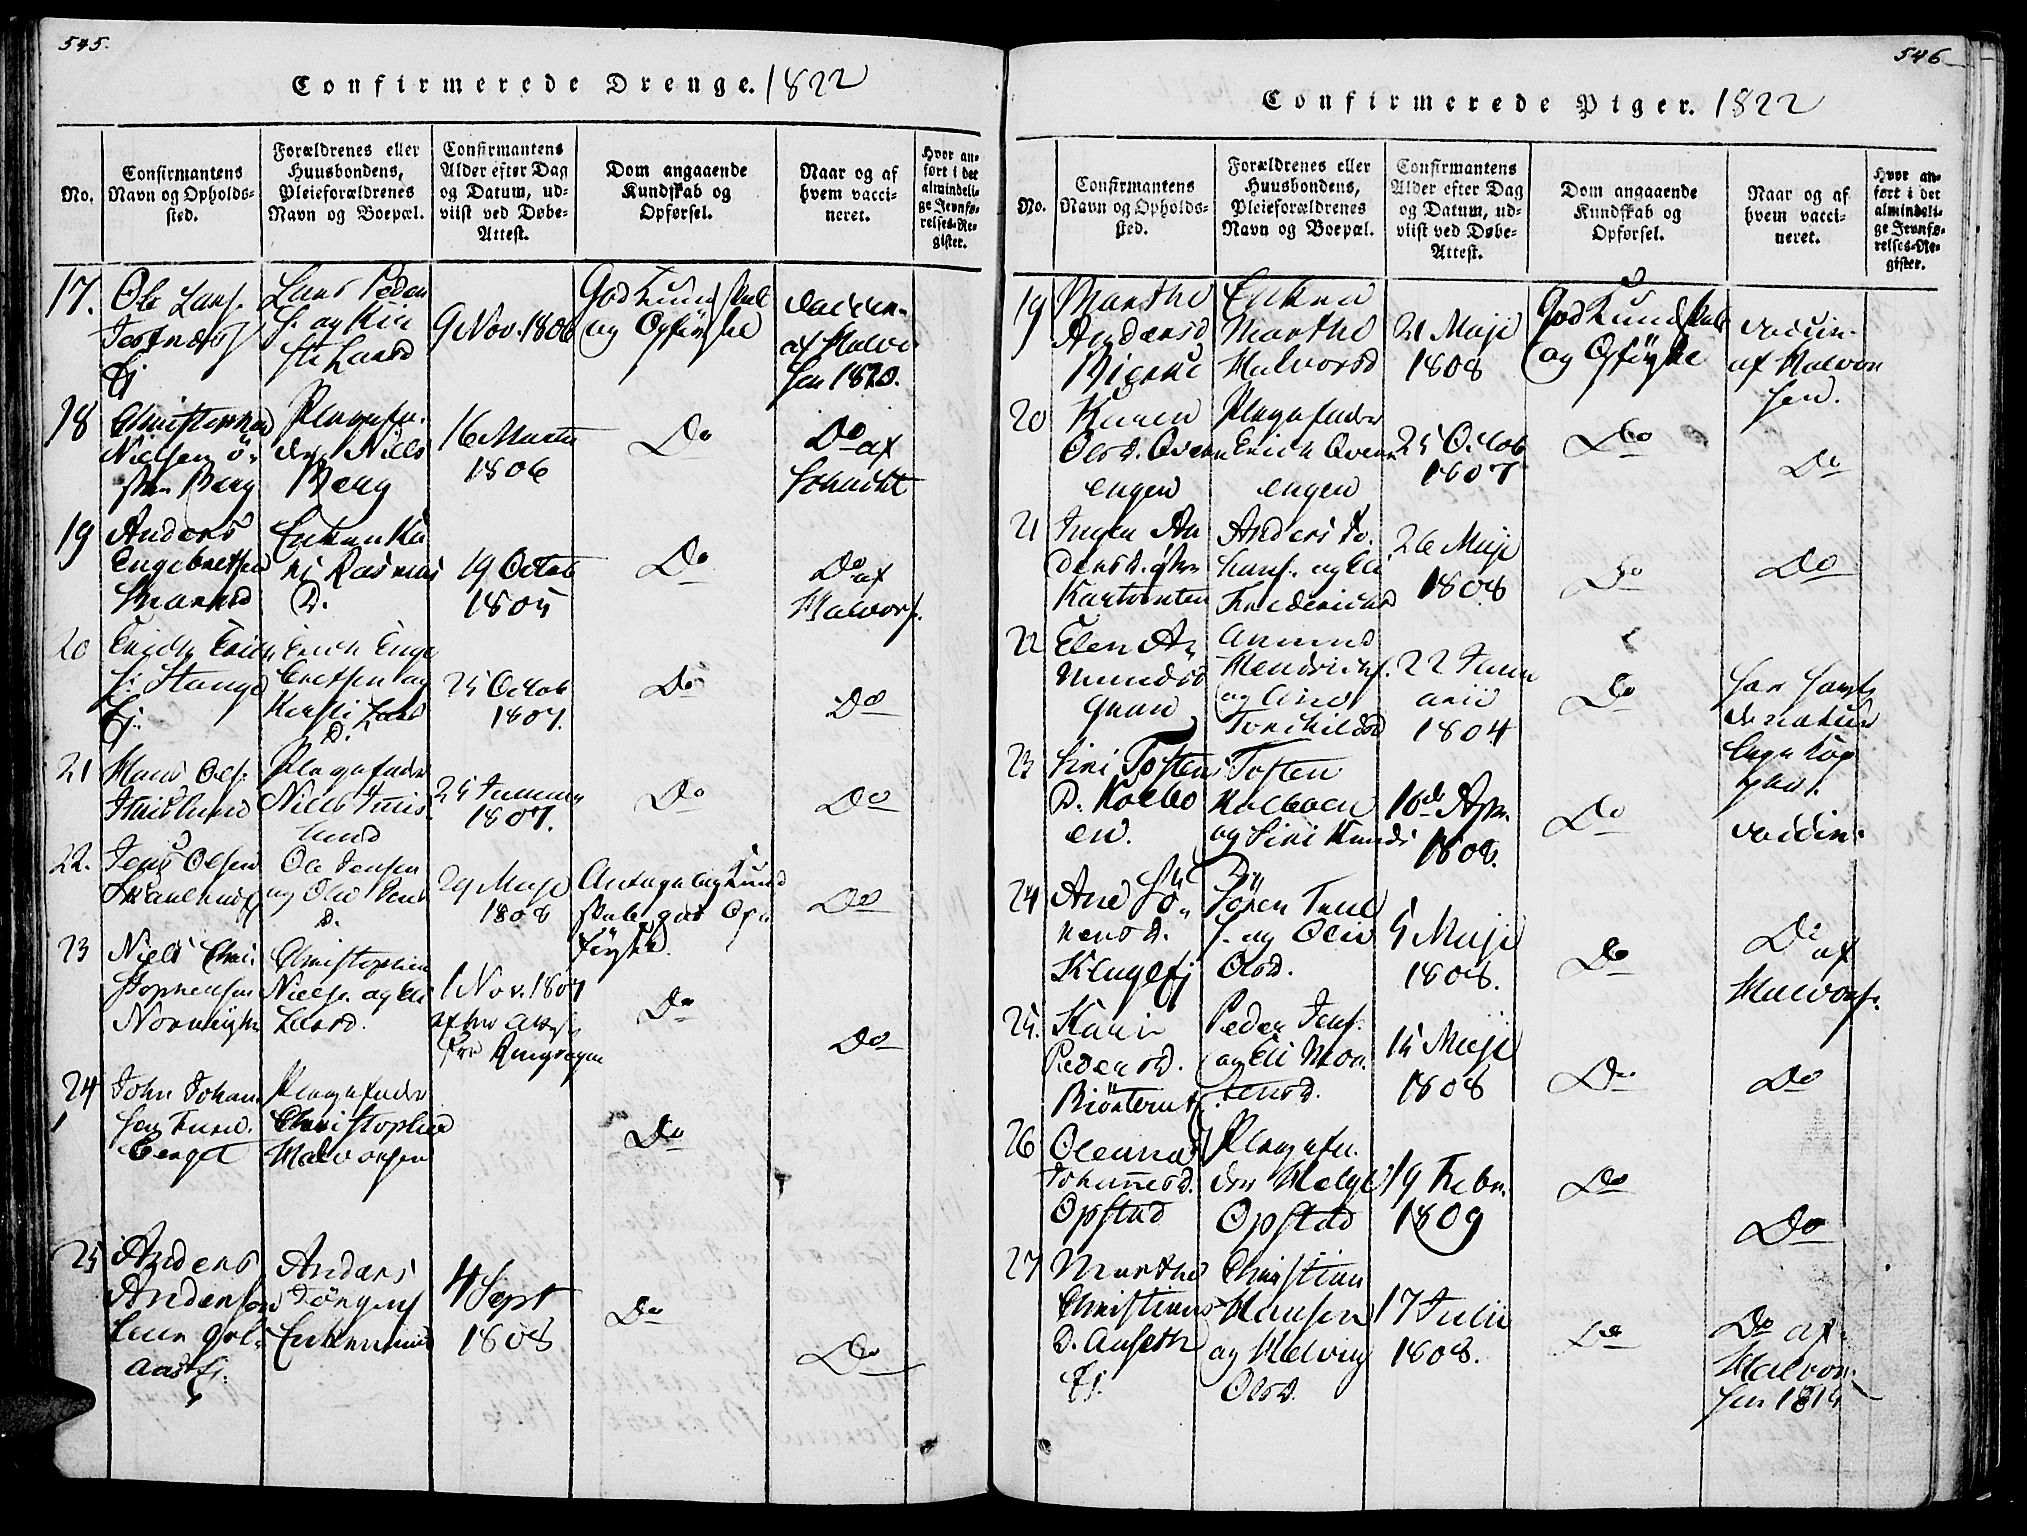 545.
Confirmerede Drenge. 1822
No.
Confirmantens
Navn og Opholds-
sted.
Forældrenes eller
Huusbondens,
Pleieforældrenes
Navn og Boepæl.
Confirmantens
Alder efter Dag
og Datum, ud-
viist ved Døbe-
Attest.
Dom angaaende
Kundskab og
Opførsel.
Naar og af
hvem vacci-
neret.
Hvor an-
ført i det
almindeli-
ge Jevnfø-
relses-Re-
gister.
17.
Ole Lars.
Ej
Lars Peder
S. og
Larsd
9 Nov. 1806
God Kundskab
og Opførsel
af Halvor
sen 1820.
18
Christopher
Nielsen
Berg
Plagefa-
der Niels
Berg
16 Marti
1806
Do
Do af
Schmidt
19
Anders
Engebretsen
Enken Ka
ri Rasmus
D.
19 Octob
1805
Do
Do af
Halvors.
20
Erich Erich
S. Stange
Ej.
Erich Enge
bretsen og
Kersti Lars
D.
25 Octob
1807.
Do
Do
21
Hans Ols.
Plagefader
Niels
lund
25 Januar
1807.
Do
Do
22.
Jens Olsen
Ole Jensen
og
D.
29 Maji
1808
Antagelig Kund
skab god Op-
førsel.
Do
23
Niels Chri
stophersen
Christopher
Niels. og Eli
Larsd.
1 Nov. 1807
fra Ringsager
Do
Do
24
John Johan
sen
Plagefader
Christopher
Halvorsen
Do
25
Anders
Andersen
aas Ej.
Anders
Jörgens
4 Sept
1808
Do
Do
546
Confirmerede Piger. 1822
No.
Confirmantens
Navn og Opholds-
sted.
Forældrenes eller
Huusbondens,
Pleieforældrenes
Navn og Boepæl.
Confirmantens
Alder efter Dag
og Datum, ud-
viist ved Døbe-
Attest.
Dom angaaende
Kundskab og
Opførsel.
Naar og af
hvem vacci-
neret.
Hvor an-
ført i det
almindeli-
ge Jevnfø-
relses-Re-
gister.
19
Marthe
Andersd
Bierke
Enken
Marthe
Halvorsd
21 Maji
1808
God Kundskab
og Opførsel
vaccin.
af Halvor
sen.
20
Karen
Olsd. Qvern
engen
Plagefader
Erich Qvern
engen
25 Octob
1807
Do
Do
21
Inger An
dersd.
Anders Jo
hans. og Eli
Fredericsd
26 Maji
1808
Do
Do
22
Elen A
mundsd
Amund
Hendrichs.
og Ane
Torchildsd
22 Janu
arii
1804
Do
har havt
de naturl
lige Kop
per.
23
Siri Tosten
D. Kolbo
en.
Tosten
Kolboen
og Siri Knuds
D
10de Apr.
1808.
Do
vaccin.
24
Ane Sö
rensd.
Sören
S. og
Olsd.
5 Maji
1808.
Do
Do af
Halvors.
25.
Karie
Pedersd.
Peder Jens.
og Eli Mor
tensd.
15 Maji
1808
Do
Do
26
Oleana
Johannesd.
Opstad
Plagefa-
der Helge
Opstad
19 Febr.
1809
Do
Do
27
Marthe
Christians
D. Aaseth
Ej.
Christian
Hansen
og Helvig
Olsd.
17 Julii
1808.
Do
Do af
Halvor-
sen 1815